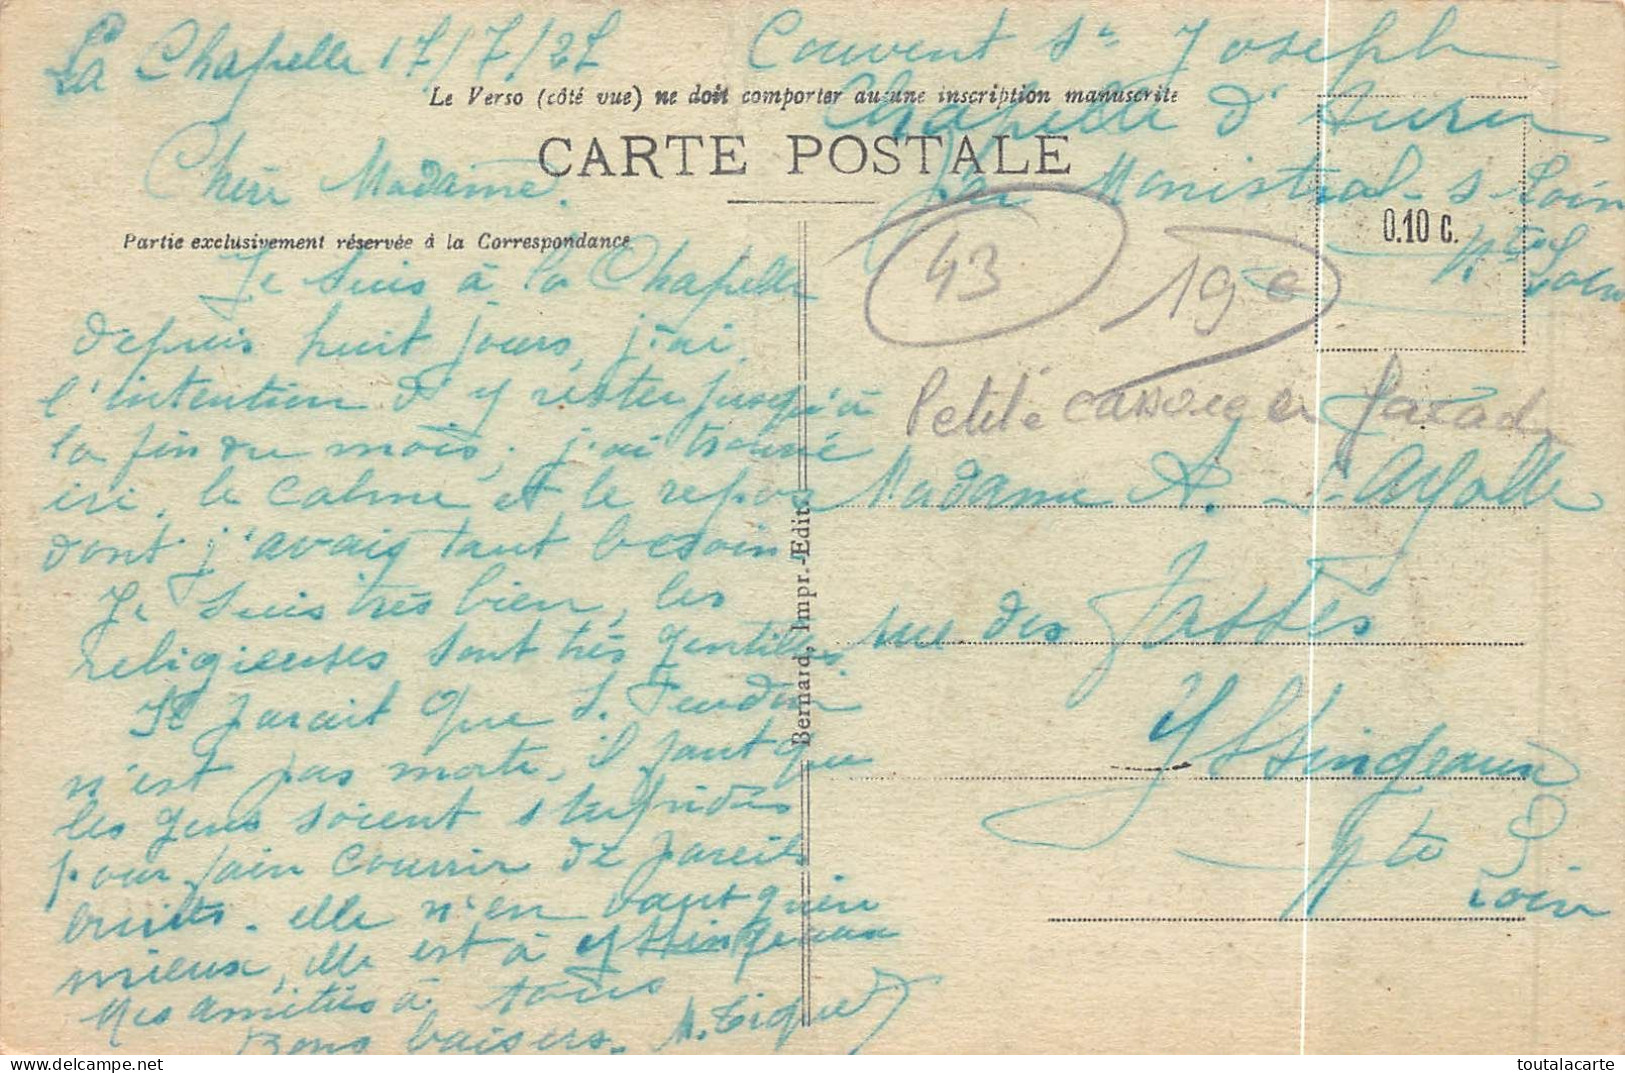 La Chapelle 17/7/27
Couvent St Joseph
Chapelle d'Aurec
par Monistrol-s-Loire
Hte Loire
Le Verso (côté vue) ne doit comporter aucune inscription manuscrite
CARTE POSTALE
0.10 c.
Partie exclusivement réservée à la Correspondance
Chère Madame.
Je suis à la Chapelle
depuis huit jours, j'ai
l'intention d'y rester jusqu'à
la fin du mois, j'ai trouvé
ici, le calme et le repos
dont j'avais tant besoin
Je suis très bien, les
religieuses sont très gentilles.
Il parait que
n'est pas morte, il faut que
les gens soient stupides
pour fair courrir de pareils
bruits. elle n'en vaut guère
mieux, elle est à Yssingeaux
Mes amitiés à tous
Bons baisers. M.
43
19 e
Petite
Madame A.
rue des
Yssingeaux
Hte Loire
Bernard, Impr.-Edit.
toutalacarte